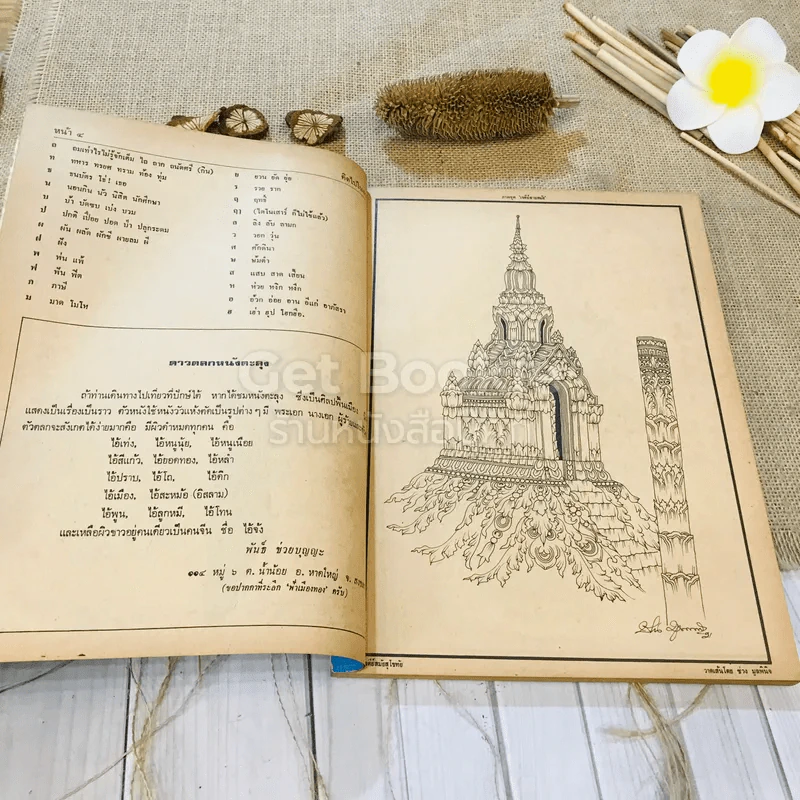 หน้า ๔
ถ ถมเท่าไรไม่รู้จักเต็ม ไถ ถาก ถนัดศรี (กิน)
ท ทหาร ทรยศ ทราม ท้อง ทุ่ม
ธ ธนบัตร ใช่! เธอ
น นอนกิน นัว นิสิต นักศึกษา
บ บ้า บัดซบ เบ่ง บวม
ป ปกติ เปื่อย ปอด ป้ำ ปลุกระดม
ผ ผัน ผลัด ผักชี ผายลม ผี
ฝ ฝัง
พ พ่น แพ้
ฟ ฟัน ฟืด
ภ ภาษี
ม มาด โมโห
ย ยวน ยัด ยุ่ย
ร ราย ราก
ฤ ฤทธิ์
ฤๅ (ไดโนเสาร์ ตีไม่ใช้แล้ว)
ล ลิง สับ ลามก
ว วอก วุ่น
ศ ศักดินา
ษ
ส แสบ สาด เสี้ยน
ห ห่วย หงิก หงึก
อ อ๊วก อ่อย อาน อีแก่
ฮ เฮ่า ฮุป ไฮกฮือ.
ดาวตลกหนังตะลุง
ถ้าท่านเดินทางไปเที่ยวที่ปักษ์ใต้ หากได้ชมหนังตะลุง ซึ่งเป็นศิลปพื้นเมือง
แสดงเป็นเรื่องเป็นราว ตัวหนังใช้หนังวัวแห้งตัดเป็นรูปต่าง ๆ มี พระเอก นางเอก ผู้ร้าย
ตัวตลกจะสังเกตได้ง่ายมากคือ มีผิวดำหมดทุกคน คือ
ไอ้เท่ง, ไอ้หนูนุ้ย, ไอ้หนูเนือย
ไอ้สีแก้ว, ไอ้ยอดทอง, ไอ้หลำ
ไอ้ปราบ, ไอ้โถ, ไอ้ดิก
ไอ้เมือง, ไอ้สะหม้อ (อิสลาม)
ไอ้พูน, ไอ้ลูกหมี, ไอ้โหน
และเหลือผิวขาวอยู่คนเดียวเป็นคนจีน ชื่อ ไอ้จ้ง
พันธ์ ช่วยบุญญะ
๑๑๔ หมู่ ๖ ต. น้ำน้อย อ. หาดใหญ่ จ. สงขลา
(ขอปากกาที่ระลึก 'ฟ้าเมืองทอง' ครับ)
สมัยสุโขทัย
วาดเส้นโดย ช่วง มูลพินิจ
Get Boo
ร้านหนังสือ